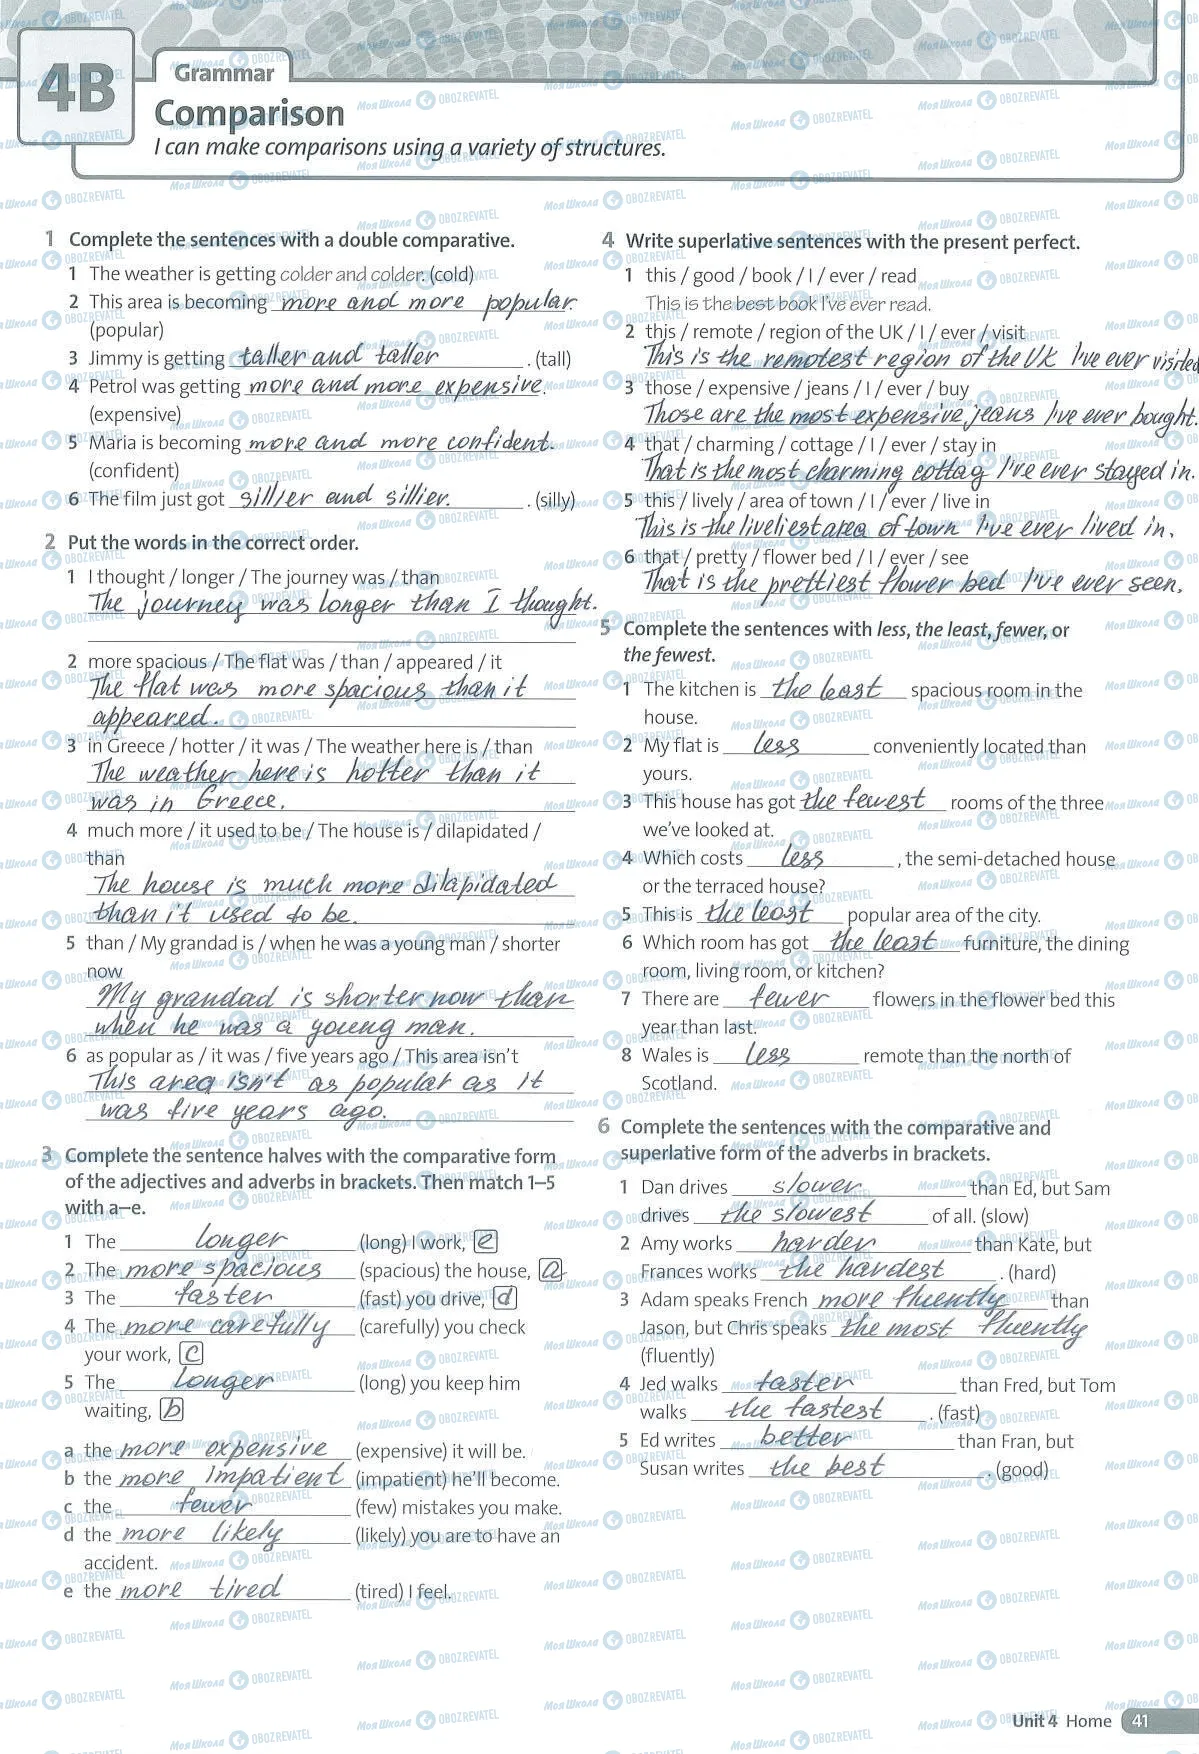 4B
Grammar
Comparison
I can make comparisons using a variety of structures.
1 Complete the sentences with a double comparative.
1 The weather is getting colder and colder. (cold)
2 This area is becoming more and more popular.
(popular)
3 Jimmy is getting taller and taller . (tall)
4 Petrol was getting more and more expensive.
(expensive)
5 Maria is becoming more and more confident.
(confident)
6 The film just got sillier and sillier. . (silly)
2 Put the words in the correct order.
1 I thought / longer / The journey was / than
The journey was longer than I thought.
2 more spacious / The flat was / than / appeared / it
The flat was more spacious than it
appeared.
3 in Greece / hotter / it was / The weather here is / than
The weather here is hotter than it
was in Greece.
4 much more / it used to be / The house is / dilapidated /
than
The house is much more dilapidated
than it used to be.
5 than / My grandad is / when he was a young man / shorter
now
My grandad is shorter now than
when he was a young man.
6 as popular as / it was / five years ago / This area isn't
This area isn't as popular as it
was five years ago.
3 Complete the sentence halves with the comparative form
of the adjectives and adverbs in brackets. Then match 1–5
with a–e.
1 The longer (long) I work, e
2 The more spacious (spacious) the house, a
3 The faster (fast) you drive, d
4 The more carefully (carefully) you check
your work, c
5 The longer (long) you keep him
waiting, b
a the more expensive (expensive) it will be.
b the more impatient (impatient) he'll become.
c the fewer (few) mistakes you make.
d the more likely (likely) you are to have an
accident.
e the more tired (tired) I feel.
4 Write superlative sentences with the present perfect.
1 this / good / book / I / ever / read
This is the best book I've ever read.
2 this / remote / region of the UK / I / ever / visit
This is the remotest region of the UK I've ever visited
3 those / expensive / jeans / I / ever / buy
Those are the most expensive jeans I've ever bought.
4 that / charming / cottage / I / ever / stay in
That is the most charming cottag I've ever stayed in.
5 this / lively / area of town / I / ever / live in
This is the liveliest area of town I've ever lived in.
6 that / pretty / flower bed / I / ever / see
That is the prettiest flower bed I've ever seen.
5 Complete the sentences with less, the least, fewer, or
the fewest.
1 The kitchen is the least spacious room in the
house.
2 My flat is less conveniently located than
yours.
3 This house has got the fewest rooms of the three
we've looked at.
4 Which costs less , the semi-detached house
or the terraced house?
5 This is the least popular area of the city.
6 Which room has got the least furniture, the dining
room, living room, or kitchen?
7 There are fewer flowers in the flower bed this
year than last.
8 Wales is less remote than the north of
Scotland.
6 Complete the sentences with the comparative and
superlative form of the adverbs in brackets.
1 Dan drives slower than Ed, but Sam
drives the slowest of all. (slow)
2 Amy works harder than Kate, but
Frances works the hardest . (hard)
3 Adam speaks French more fluently than
Jason, but Chris speaks the most fluently
(fluently)
4 Jed walks faster than Fred, but Tom
walks the fastest . (fast)
5 Ed writes better than Fran, but
Susan writes the best . (good)
Unit 4 Home 41
Моя Школа OBOZREVATEL